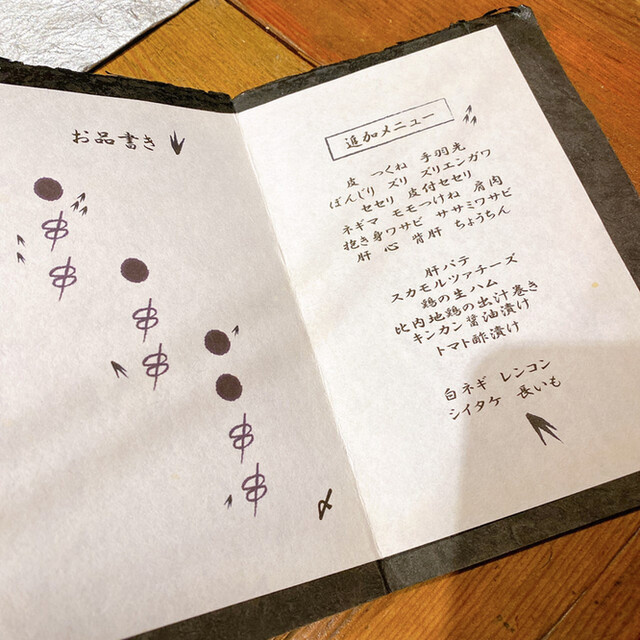 お品書き
〆
追加メニュー
皮 つくね 手羽先
ぼんじり ズリ ズリエンガワ
セセリ 皮付セセリ
ネギマ モモつけね 肩肉
抱き身ワサビ ササミワサビ
肝 心 背肝 ちょうちん
肝パテ
スカモルツァチーズ
鶏の生ハム
比内地鶏の出汁巻き
キンカン醤油漬け
トマト酢漬け
白ネギ レンコン
シイタケ 長いも